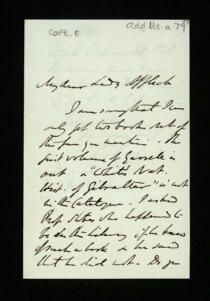 COPE, E.
Add. Ms. a. 79⁹
My dear Lady Affleck
I am sorry that I can
only get two books out of
the four you mention. The
first volume of Yarrell is
out & "White's Nat.
Hist. of Gibraltar" is not
in the Catalogue. I asked
Prof. who happened to
be in the Library if he knew
of such a book & he said
that he did not. Do you